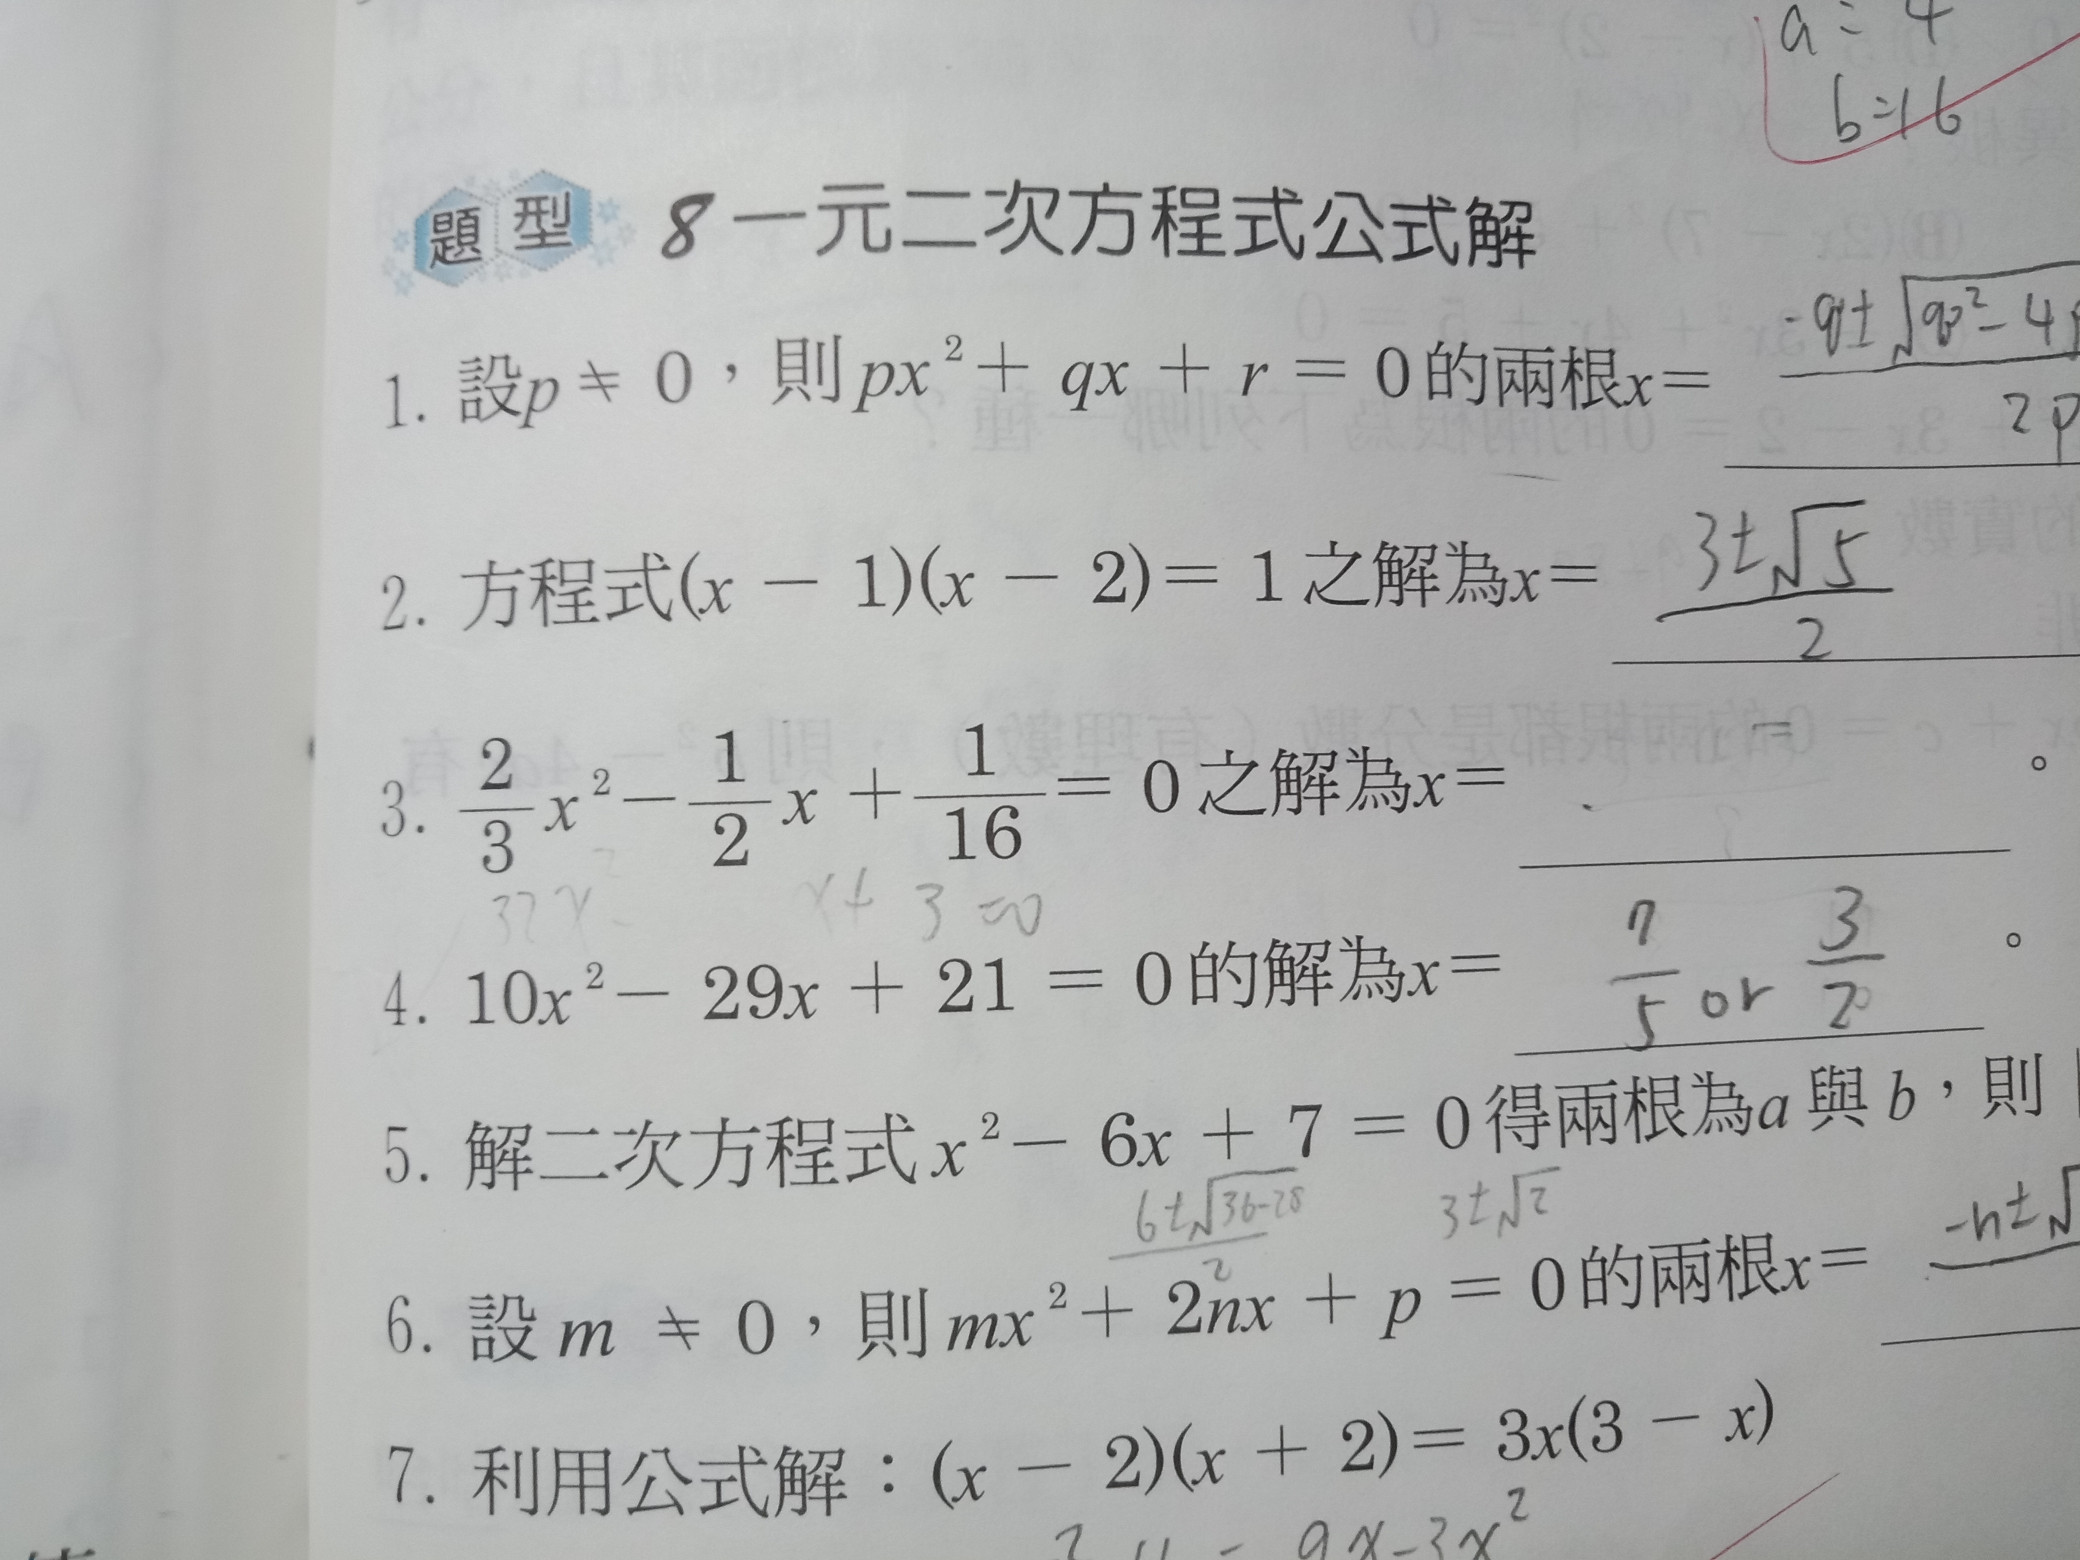 a = 4
b=16
題型 8 一元二次方程式公式解
1. 設p ≠ 0，則px²+ qx + r = 0的兩根x= (-q±√(q²-4p))/2p
2. 方程式(x − 1)(x − 2)= 1之解為x= (3±√5)/2
3. 2/3 x²− 1/2 x + 1/16 = 0之解為x= 。
32x²- x+ 3 =0
4. 10x²− 29x + 21 = 0的解為x= 7/5 or 3/2 。
5. 解二次方程式x²− 6x + 7 = 0得兩根為a與b，則
(6±√(36-28))/2 3±√2
6. 設m ≠ 0，則mx²+ 2nx + p = 0的兩根x= -n±√
7. 利用公式解：(x − 2)(x + 2)= 3x(3 − x)
= 9x-3x²